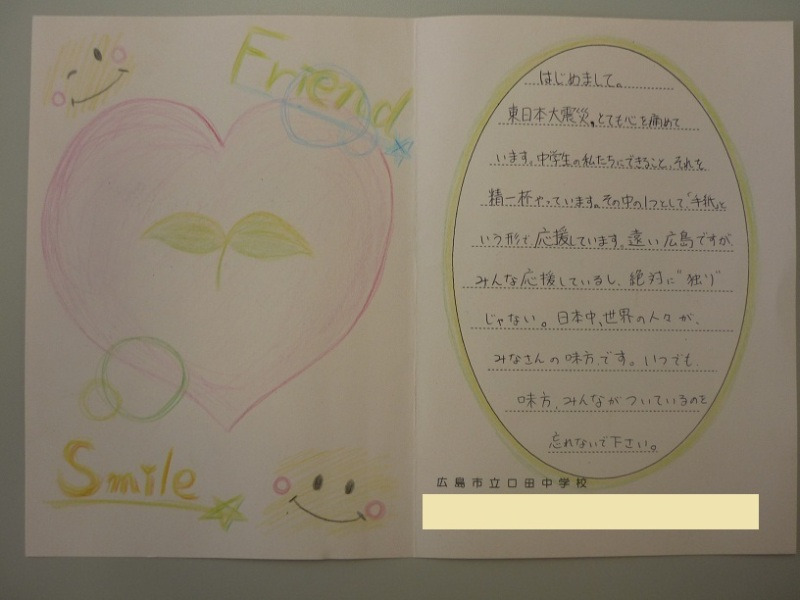 Friend
Smile
はじめまして。
東日本大震災、とても心を痛めて
います。中学生の私たちにできること、それを
精一杯やっています。その中の1つとして、「手紙」と
いう形で応援しています。遠い広島ですが、
みんな応援しているし、絶対に"独り"
じゃない。日本中、世界の人々が、
みなさんの味方です。いつでも、
味方、みんながついているのを
忘れないで下さい。
広島市立口田中学校